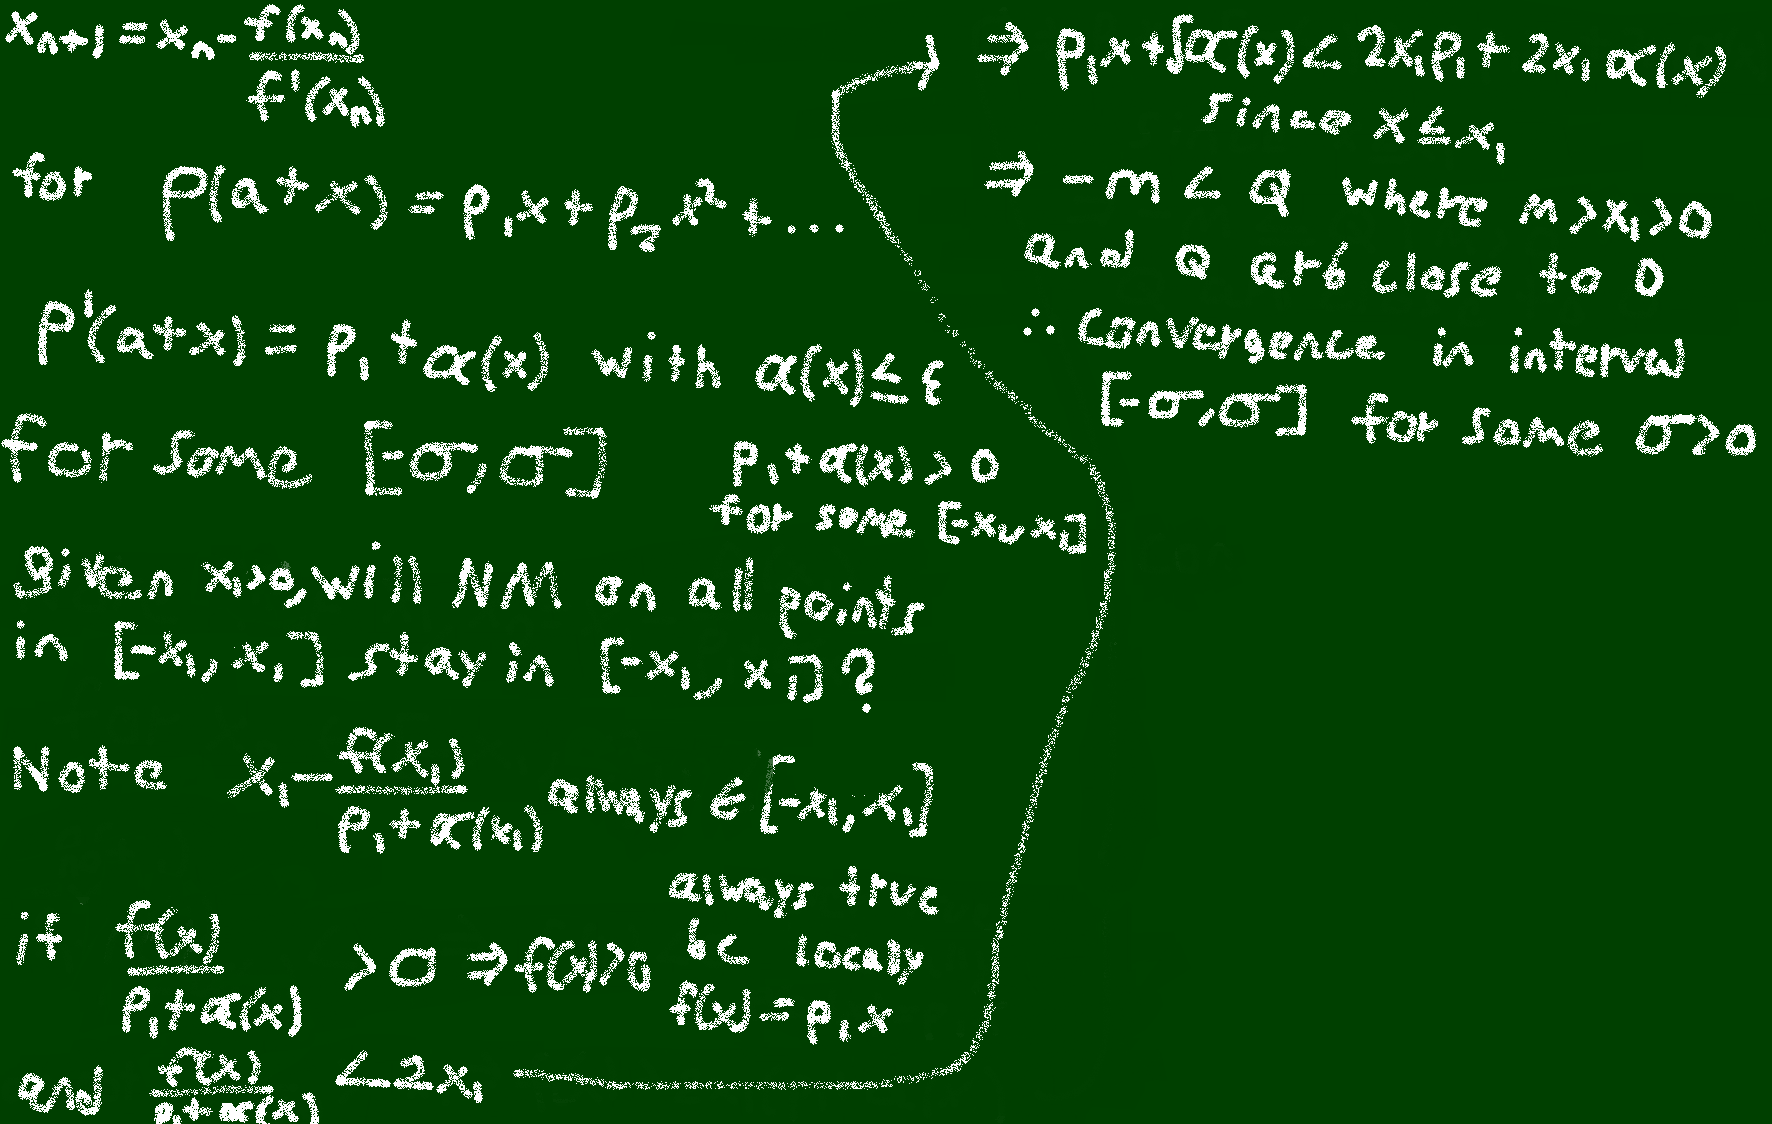 x_{n+1} = x_n - f(x_n)/f'(x_n)
for P(a+x) = P_1x + P_2x^2 + ...
P'(a+x) = P_1 + α(x) with α(x) ≤ ε
for some [-σ, σ]
P_1 + α(x) > 0
for some [-x_1, x_1]
given x_1>0, will NM on all points
in [-x_1, x_1] stay in [-x_1, x_1]?
Note x_1 - f(x_1)/(P_1 + α(x_1)) always ∈ [-x_1, x_1]
if f(x)/(P_1 + α(x)) > 0 ⇒ f(x)>0
always true
bc localy
f(x) = P_1x
and f(x)/(P_1 + α(x)) < 2x_1
⇒ P_1x + ∫α(x) < 2x_1P_1 + 2x_1α(x)
since x ≤ x_1
⇒ -m < Q where m > x_1 > 0
and Q arb close to 0
∴ convergence in interval
[-σ, σ] for some σ>0